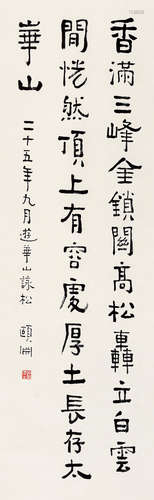 香滿三峰金鎖關高松轟立白雲
間恍然頂上有容處厚土長存太
華山
二十五年九月遊華山詠松 頤淵